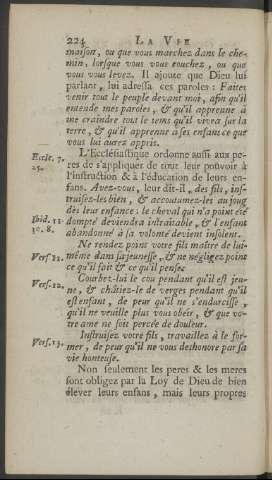 224 LA VIE
maison, ou que vous marchez dans le che-
min, lorsque vous vous couchez, ou que
vous vous levez. Il ajoute que Dieu lui
parlant, lui adressa ces paroles : Faites
venir tout le peuple devant moi, afin qu'il
entende mes paroles, & qu'il apprenne à
me craindre tout le tems qu'il vivra sur la
terre, & qu'il apprenne à ses enfans ce que
vous lui aurez appris.
Eccle. 7. L'Ecclésiastique ordonne aussi aux pe-
25. res de s'appliquer de tout leur pouvoir à
l'instruction & à l'éducation de leurs en-
fans. Avez-vous, leur dit-il, des fils, ins-
truisez-les bien, & accoutumez-les au joug
dès leur enfance : le cheval qui n'a point été
Ibid. dompté deviendra intraitable, & l'enfant
30. 8. abandonné à sa volonté devient insolent.
Ne rendez point votre fils maître de lui-
Vers. 11. même dans sa jeunesse, & ne négligez point
ce qu'il fait & ce qu'il pense.
Vers. 12. Courbez-lui le cou pendant qu'il est jeu-
ne, & châtiez-le de verges pendant qu'il
est enfant, de peur qu'il ne s'endurcisse,
qu'il ne veuille plus vous obéir, & que vo-
tre ame ne soit percée de douleur.
Vers. 13. Instruisez votre fils, travaillez à le for-
mer, de peur qu'il ne vous deshonore par sa
vie honteuse.
Non seulement les peres & les meres
sont obligez par la Loy de Dieu de bien
élever leurs enfans, mais leurs propres